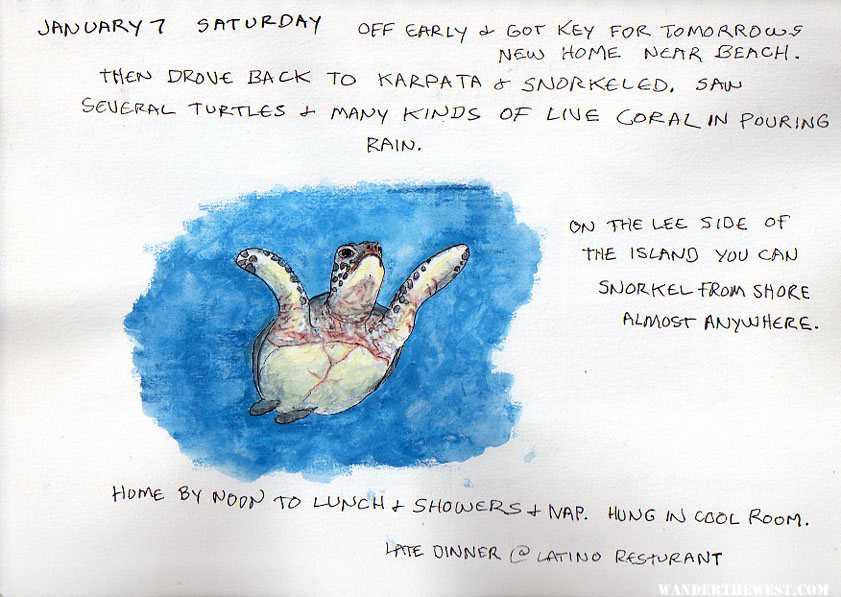 JANUARY 7 SATURDAY OFF EARLY & GOT KEY FOR TOMORROWS
NEW HOME NEAR BEACH.
THEN DROVE BACK TO KARPATA & SNORKELED. SAW
SEVERAL TURTLES & MANY KINDS OF LIVE CORAL IN POURING
RAIN.
ON THE LEE SIDE OF
THE ISLAND YOU CAN
SNORKEL FROM SHORE
ALMOST ANYWHERE.
HOME BY NOON TO LUNCH & SHOWERS & NAP. HUNG IN COOL ROOM.
LATE DINNER @ LATINO RESTURANT
WANDERTHEWEST.COM